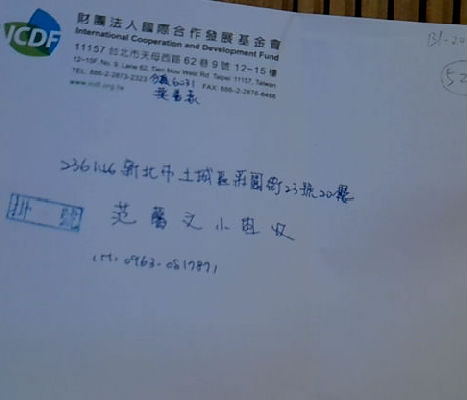 ICDF
財團法人國際合作發展基金會
International Cooperation and Development Fund
11157 台北市天母西路 62 巷 9 號 12-15 樓
12-15F, No. 9, Lane 62, Tien Mou West Rd, Taipei 11157, Taiwan
TEL: 886-2-2873-2323 分機6031 FAX: 886-2-2876-6466
www.icdf.org.tw
236146 新北市土城區莊園街23號20樓
掛號
范 文小姐收